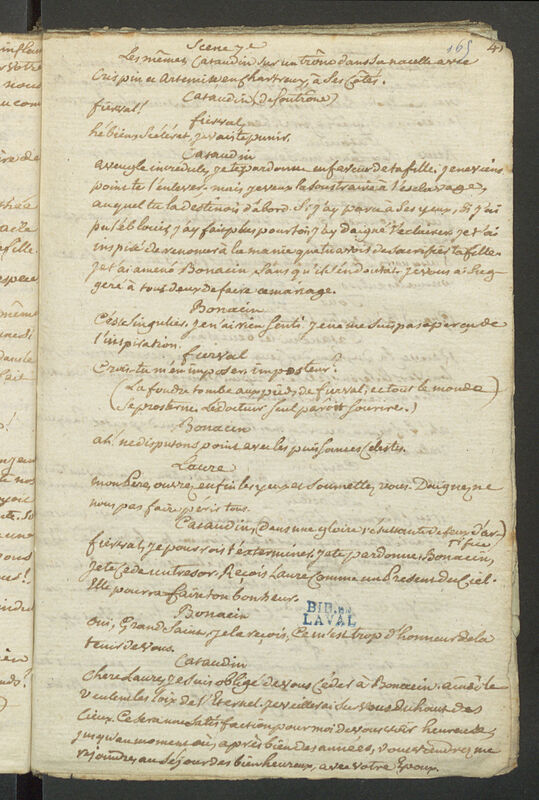 165 41
Scene 7e
Les mêmes, Cataudin sur un trône dans sa nacelle avec
Crispin et Artemise en Chartreux, à ses Côtés.
Cataudin (de son trône)
fierval!
fierval
hé bien scélérat, je vais te punir.
Cataudin
aveugle incredule, je te pardonne en faveur de ta fille. je ne viens
point te l'enlever. mais, je veux la soustraire à l'esclavage,
auquel tu la destinois d'abord. Si j'ay paru à ses yeux, si j'ai
pu t'éblouir, j'ay fait plus pour toi, j'ay daigné t'eclairer, je t'ai
inspiré de renoncer à la manie que tu avois de sacrifier ta fille.
je t'ai amené Bonacin, sans qu'il s'en doutat. je vous ai sug
geré à tous deux de faire ce mariage.
Bonacin
C'est singulier, je n'ai rien senti. je ne me suis pas aperçu de
l'inspiration.
fierval
Crois-tu m'en imposer, imposteur.
(La foudre tombe aux pieds de fierval, et tout le monde
se prosterne. Le docteur seul paroit sourire.)
Bonacin
ah! ne disputons point avec les puissances celestes.
Laure
mon Père, ouvrez enfin les yeux et soumettez vous. Daignez ne
nous pas faire périr tous.
Cataudin, (dans une gloire résultante de feux d'ar-
tifice)
fierval, je pourrois t'exterminer, je te pardonne. Bonacin,
je te cede un tresor. Reçois Laure comme un Présent du Ciel.
Elle pourra faire ton bonheur.
Bonacin
BIB. DE
LAVAL
oui, Grand Saint, je la reçois, Ce m'est trop d'honneur de la
tenir de vous.
Cataudin
Chere Laure, je suis obligé de vous céder à Bonacin. ainsi le
veulent les loix de l'Eternel. je veillerai sur vous du haut des
Cieux. Ce sera une satisfaction pour moi de vous voir heureuse,
jusqu'au moment où, après bien des années, vous viendrez me
rejoindre au Séjour des bienheureux, avec votre Epoux.